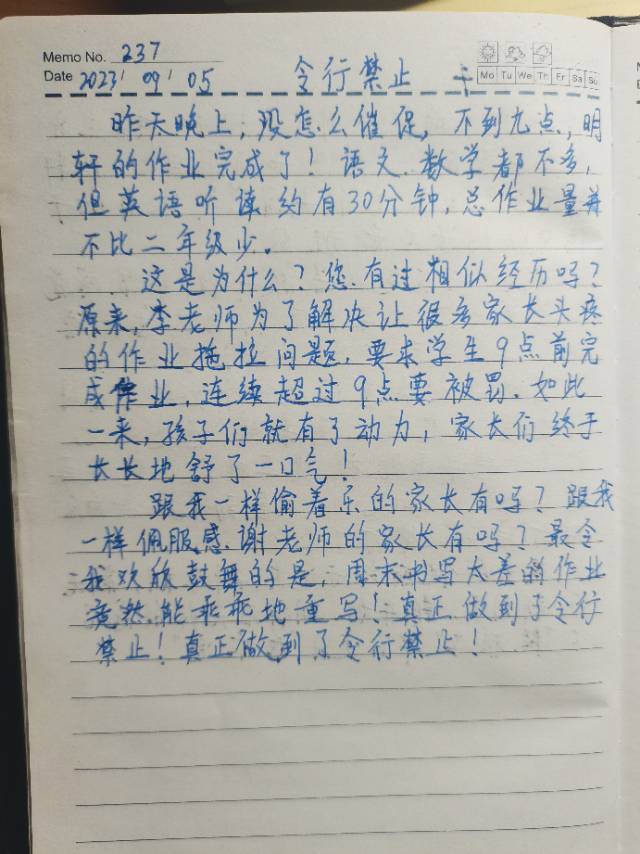 Memo No. 237
Date 2023/ 09/ 05 令行禁止
Mo Tu We Th Fr Sa Su
昨天晚上，没怎么催促，不到九点，明
轩的作业完成了！语文、数学都不多，
但英语听读约有30分钟，总作业量并
不比二年级少。
这是为什么？您有过相似经历吗？
原来，李老师为了解决让很多家长头疼
的作业拖拉问题，要求学生9点前完
成作业，连续超过9点要被罚。如此
一来，孩子们就有了动力，家长们终于
长长地舒了一口气！
跟我一样偷着乐的家长有吗？跟我
一样佩服感谢老师的家长有吗？最令
我欢欣鼓舞的是，周末书写太差的作业
竟然能乖乖地重写！真正做到了令行
禁止！真正做到了令行禁止！